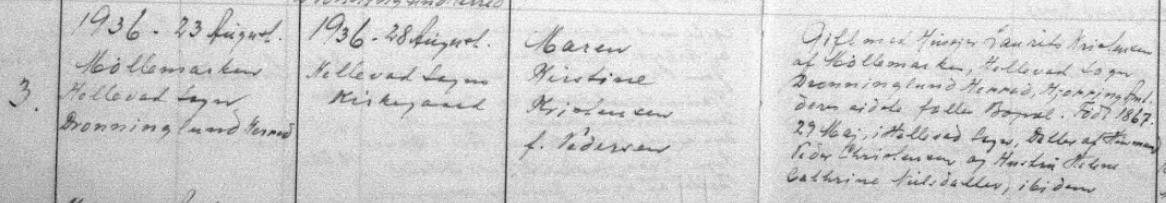 3.
1936 - 23 August.
Möllemarken
Hellevad Sogn
Dronninglund Herred
1936 - 28 August.
Hellevad Sogns
Kirkegaard
Maren
Kirstine
Kristensen
f. Pedersen
Gift med Husejer Laurits Kristensen
af Möllemarken, Hellevad Sogn
Dronninglund Herred, Hjørring Amt.
deres sidste fælles Bopæl. Född 1867.
29 Maj, i Hellevad Sogn, Datter af Husmand
Peder Christensen og Hustru Helene
Cathrine Nielsdatter, ibidem